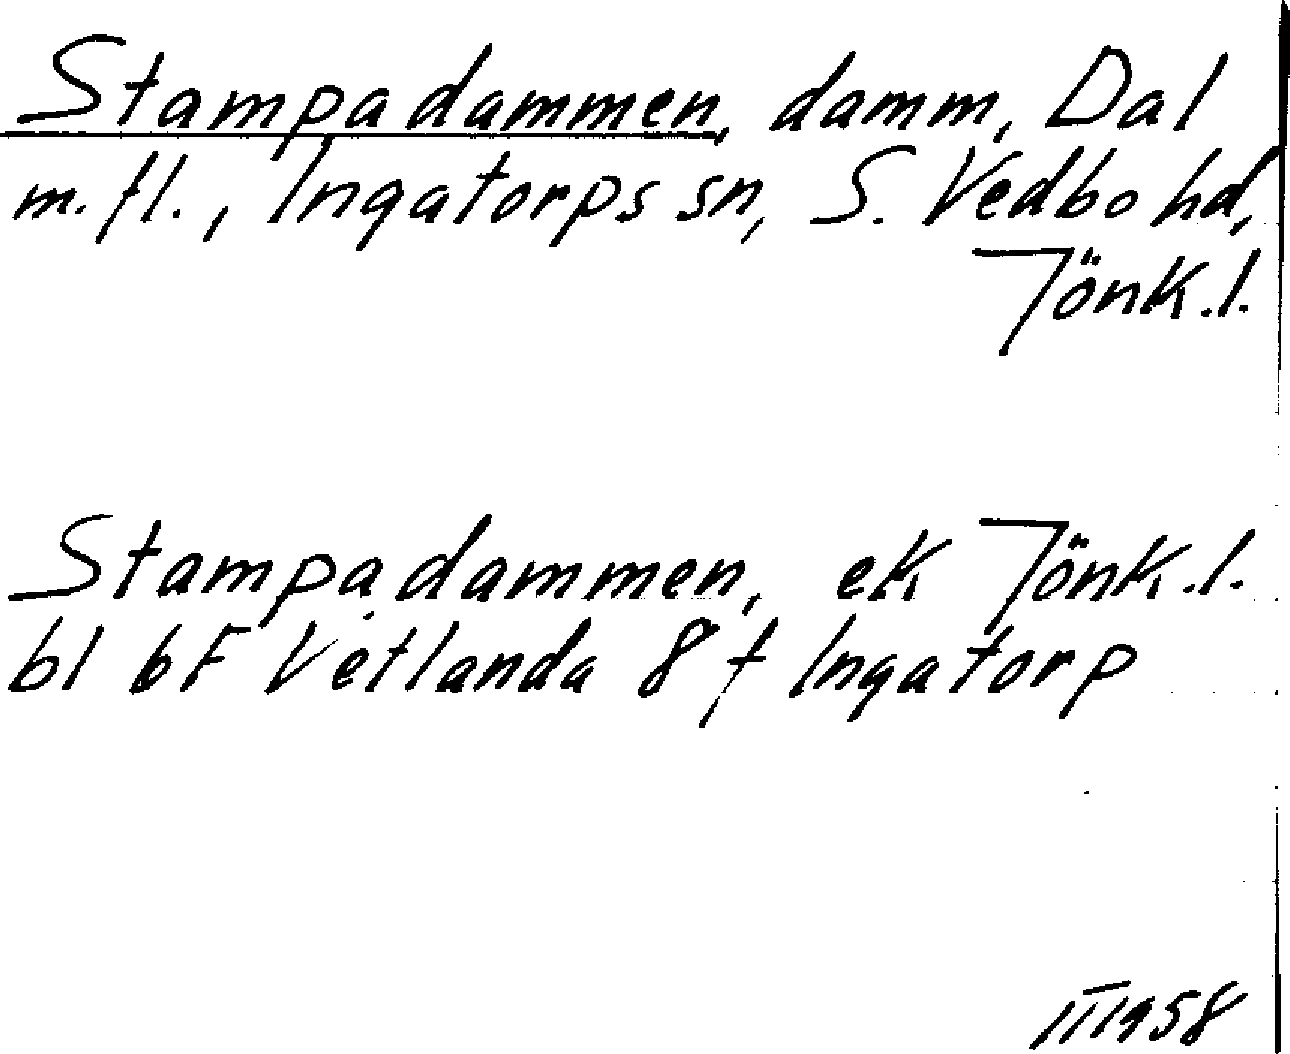 Stampadammen, damm, Dal
m.fl., Ingatorps sn, S. Vedbo hd,
Jönk.l.
Stampadammen, ek Jönk.l.
bl bF Vetlanda 8 f Ingatorp
III 1958